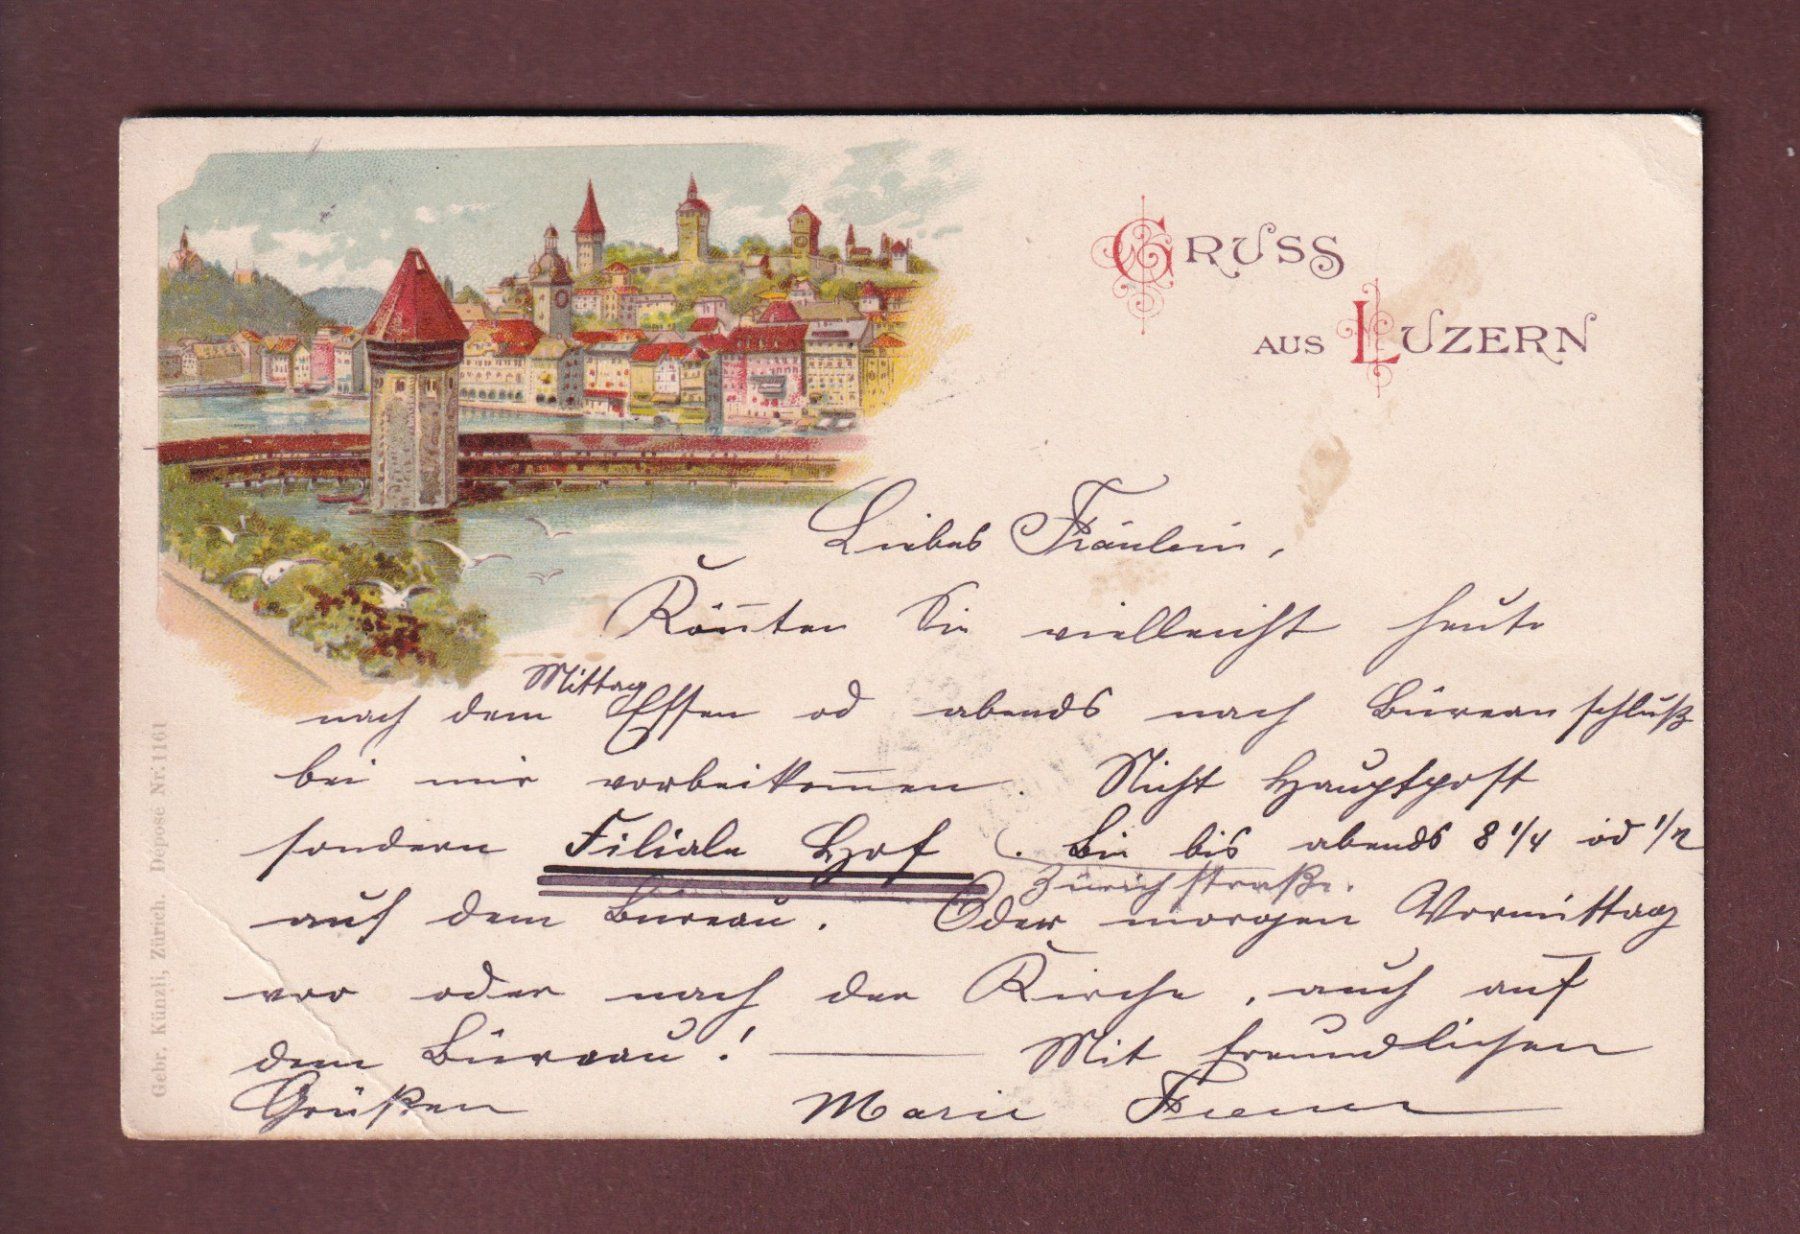 GRUSS
AUS LUZERN
Liebes Fräulein,
Könnten Sie vielleicht heute
Mittag
nach dem Essen od abends nach Büreau schluß
bei mir vorbeikommen. Nicht Hauptpost
sondern Filiale Hof. Bin bis abends 8 1/4 od 1/2
Zürichstraße.
auf dem Bureau. Oder morgen Vormittag
vor oder nach der Kirche, auch auf
dem Büreau! — Mit freundlichen
Grüßen Marie
Gebr. Künzli, Zürich. Depose Nr. 1161